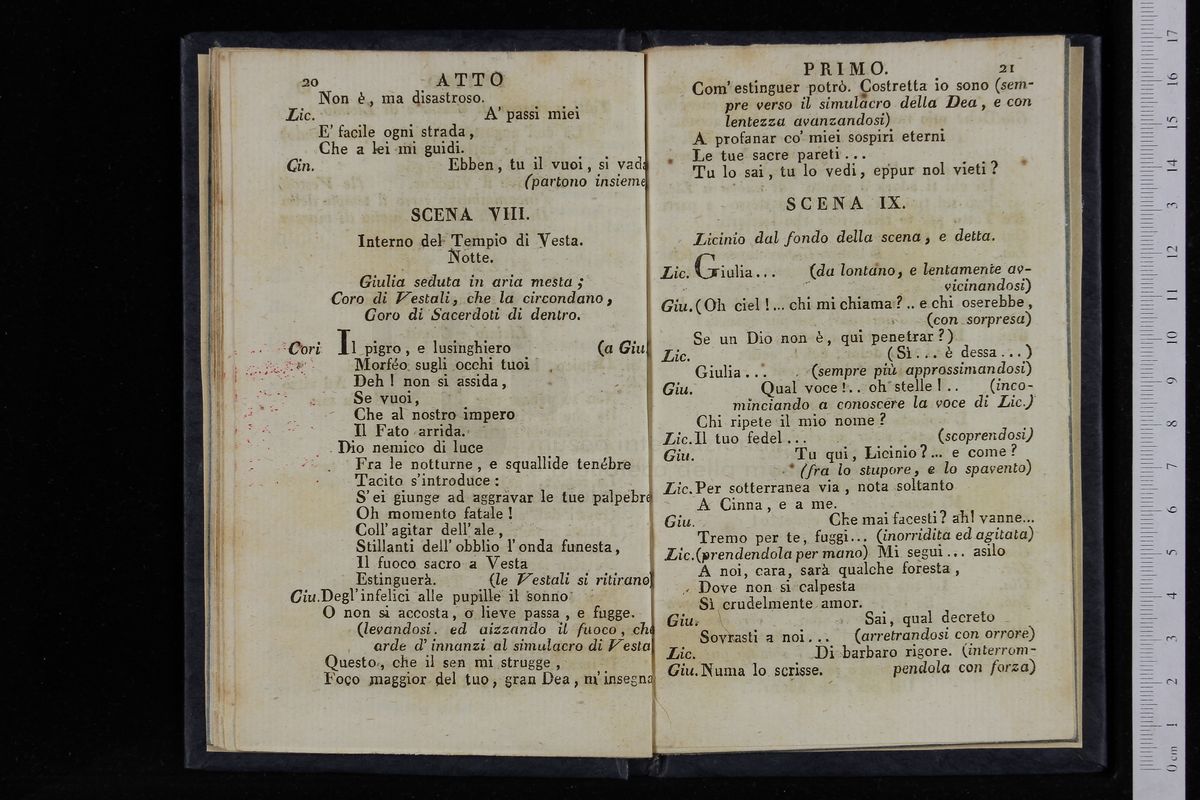 20 ATTO
Non è, ma disastroso.
Lic. A' passi miei
E' facile ogni strada,
Che a lei mi guidi.
Cin. Ebben, tu il vuoi, si vada
(partono insieme
SCENA VIII.
Interno del Tempio di Vesta.
Notte.
Giulia seduta in aria mesta;
Coro di Vestali, che la circondano,
Coro di Sacerdoti di dentro.
Cori Il pigro, e lusinghiero (a Giu.
Morféo sugli occhi tuoi
Deh! non si assida,
Se vuoi,
Che al nostro impero
Il Fato arrida.
Dio nemico di luce
Fra le notturne, e squallide tenébre
Tacito s'introduce:
S'ei giunge ad aggravar le tue palpebre
Oh momento fatale!
Coll' agitar dell' ale,
Stillanti dell' obblio l'onda funesta,
Il fuoco sacro a Vesta
Estinguerà. (le Vestali si ritirano)
Giu. Degl'infelici alle pupille il sonno
O non si accosta, o lieve passa, e fugge.
(levandosi. ed aizzando il fuoco, che
arde d'innanzi al simulacro di Vesta
Questo, che il sen mi strugge,
Foco maggior del tuo, gran Dea, m'insegna
PRIMO. 21
Com' estinguer potrò. Costretta io sono (sem-
pre verso il simulacro della Dea, e con
lentezza avanzandosi)
A profanar co' miei sospiri eterni
Le tue sacre pareti...
Tu lo sai, tu lo vedi, eppur nol vieti?
SCENA IX.
Licinio dal fondo della scena, e detta.
Lic. Giulia... (da lontano, e lentamente av-
vicinandosi)
Giu. (Oh ciel!... chi mi chiama?.. e chi oserebbe,
(con sorpresa)
Se un Dio non è, qui penetrar?)
Lic. (Sì... è dessa...)
Giulia... (sempre più approssimandosi)
Giu. Qual voce!.. oh stelle!.. (inco-
minciando a conoscere la voce di Lic.)
Chi ripete il mio nome?
Lic. Il tuo fedel... (scoprendosi)
Giu. Tu qui, Licinio?... e come?
(fra lo stupore, e lo spavento)
Lic. Per sotterranea via, nota soltanto
A Cinna, e a me.
Giu. Che mai facesti? ah! vanne...
Tremo per te, fuggi... (inorridita ed agitata)
Lic. (prendendola per mano) Mi segui... asilo
A noi, cara, sarà qualche foresta,
Dove non si calpesta
Sì crudelmente amor.
Giu. Sai, qual decreto
Sovrasti a noi... (arretrandosi con orrore)
Lic. Di barbaro rigore. (interrom-
Giu. Numa lo scrisse. pendola con forza)
0 cm 1 2 3 4 5 6 7 8 9 10 11 12 13 14 15 16 17